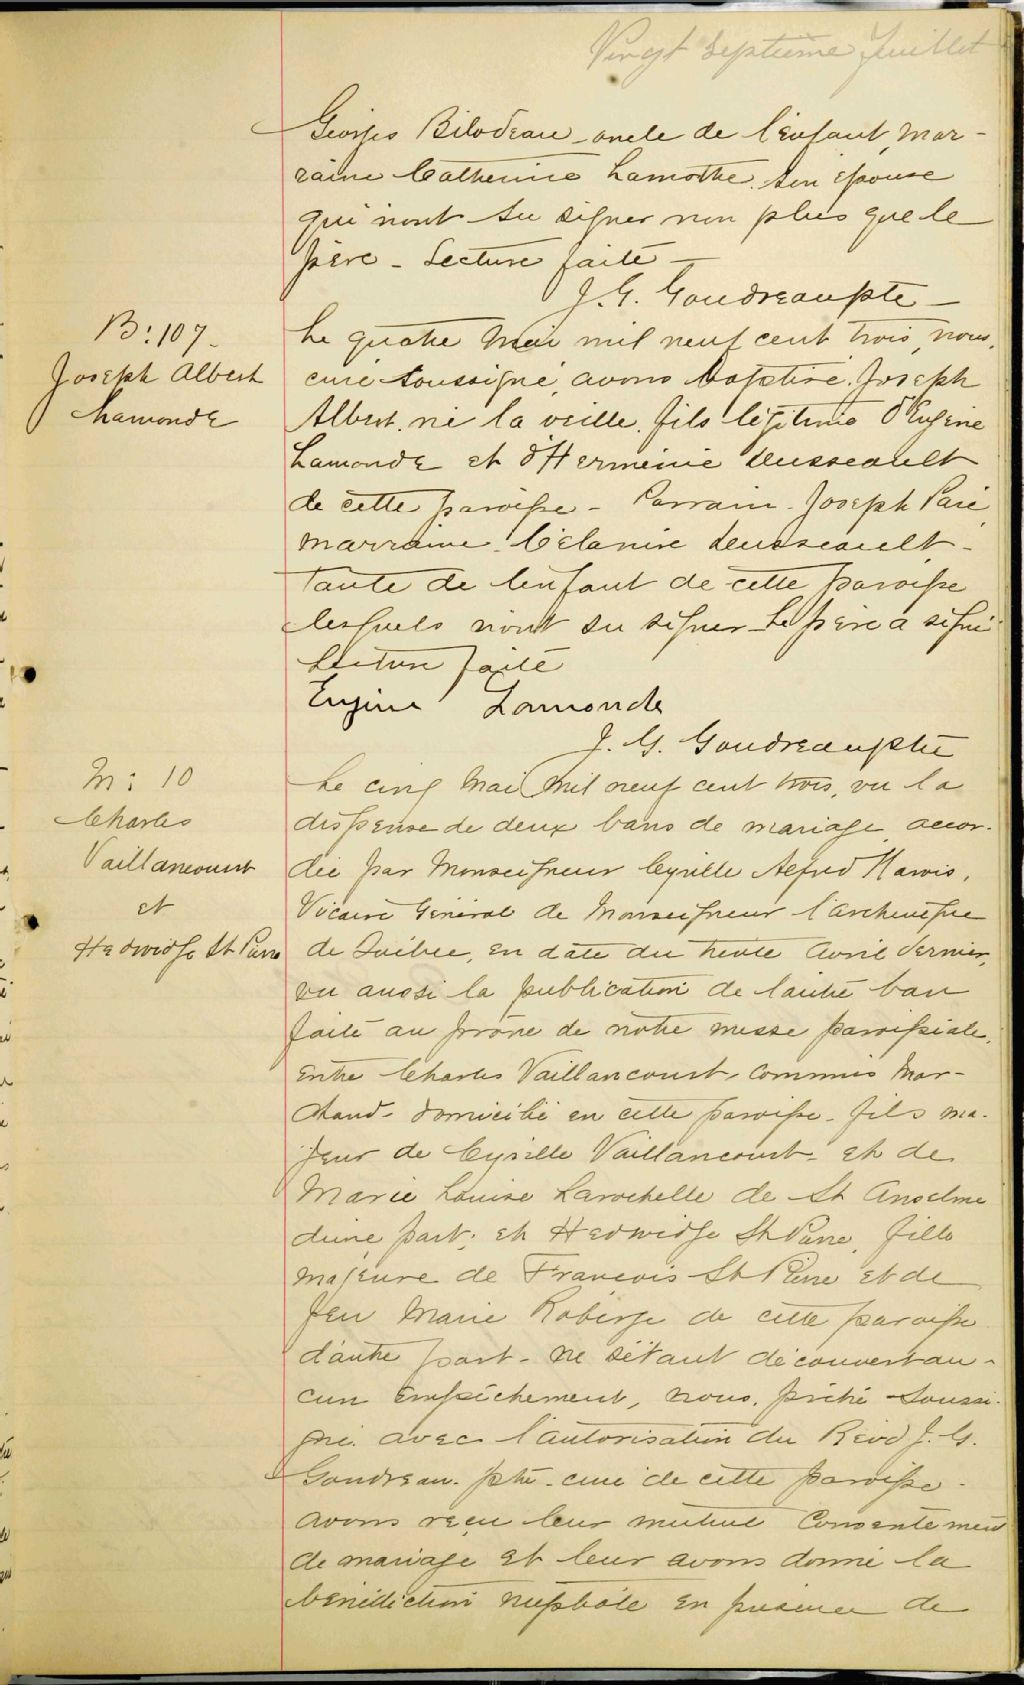 Vingt Septième Juillet
Georges Bilodeau oncle de l'enfant, mar-
raine Catherine Lamothe son épouse
qui n'ont su signer non plus que le
père - Lecture faite -
J. G. Goudreau ptre -
B: 107.
Joseph Albert
Lamonde
Le quatre Mai mil neuf cent trois, nous,
curé soussigné, avons baptisé Joseph
Albert, né la veille, fils légitime d'Eugène
Lamonde et d'Herménie Dusseault
de cette paroisse - Parrain - Joseph Paré
marraine Célanire Dusseault -
tante de l'enfant de cette paroisse
lesquels n'ont su signer - Le père a signé
Lecture faite
Eugène Lamonde
J. G. Goudreau ptre
M: 10
Charles
Vaillancourt
et
Hedwidge St Pierre
Le cinq Mai mil neuf cent trois, vu la
dispense de deux bans de mariage accor-
dée par Monseigneur Cyrille Alfred Marois,
Vicaire Général de Monseigneur l'archevêque
de Québec, en date du trente Avril dernier,
vu aussi la publication de l'autre ban
faite au prône de notre messe paroissiale,
Entre Charles Vaillancourt, Commis Mar-
chand - domicilié en cette paroisse - fils ma-
jeur de Cyrille Vaillancourt - et de
Marie Louise Larochelle de St Anselme
d'une part; et Hedwidge St Pierre, fille
majeure de François St Pierre et de
feu Marie Roberge de cette paroisse
d'autre part - ne s'étant découvert au-
cun empêchement, nous, prêtre soussi-
gné avec l'autorisation du Révd J. G.
Goudreau - ptre - curé de cette paroisse -
avons reçu leur mutuel Consentement
de mariage et leur avons donné la
bénédiction nuptiale en présence de